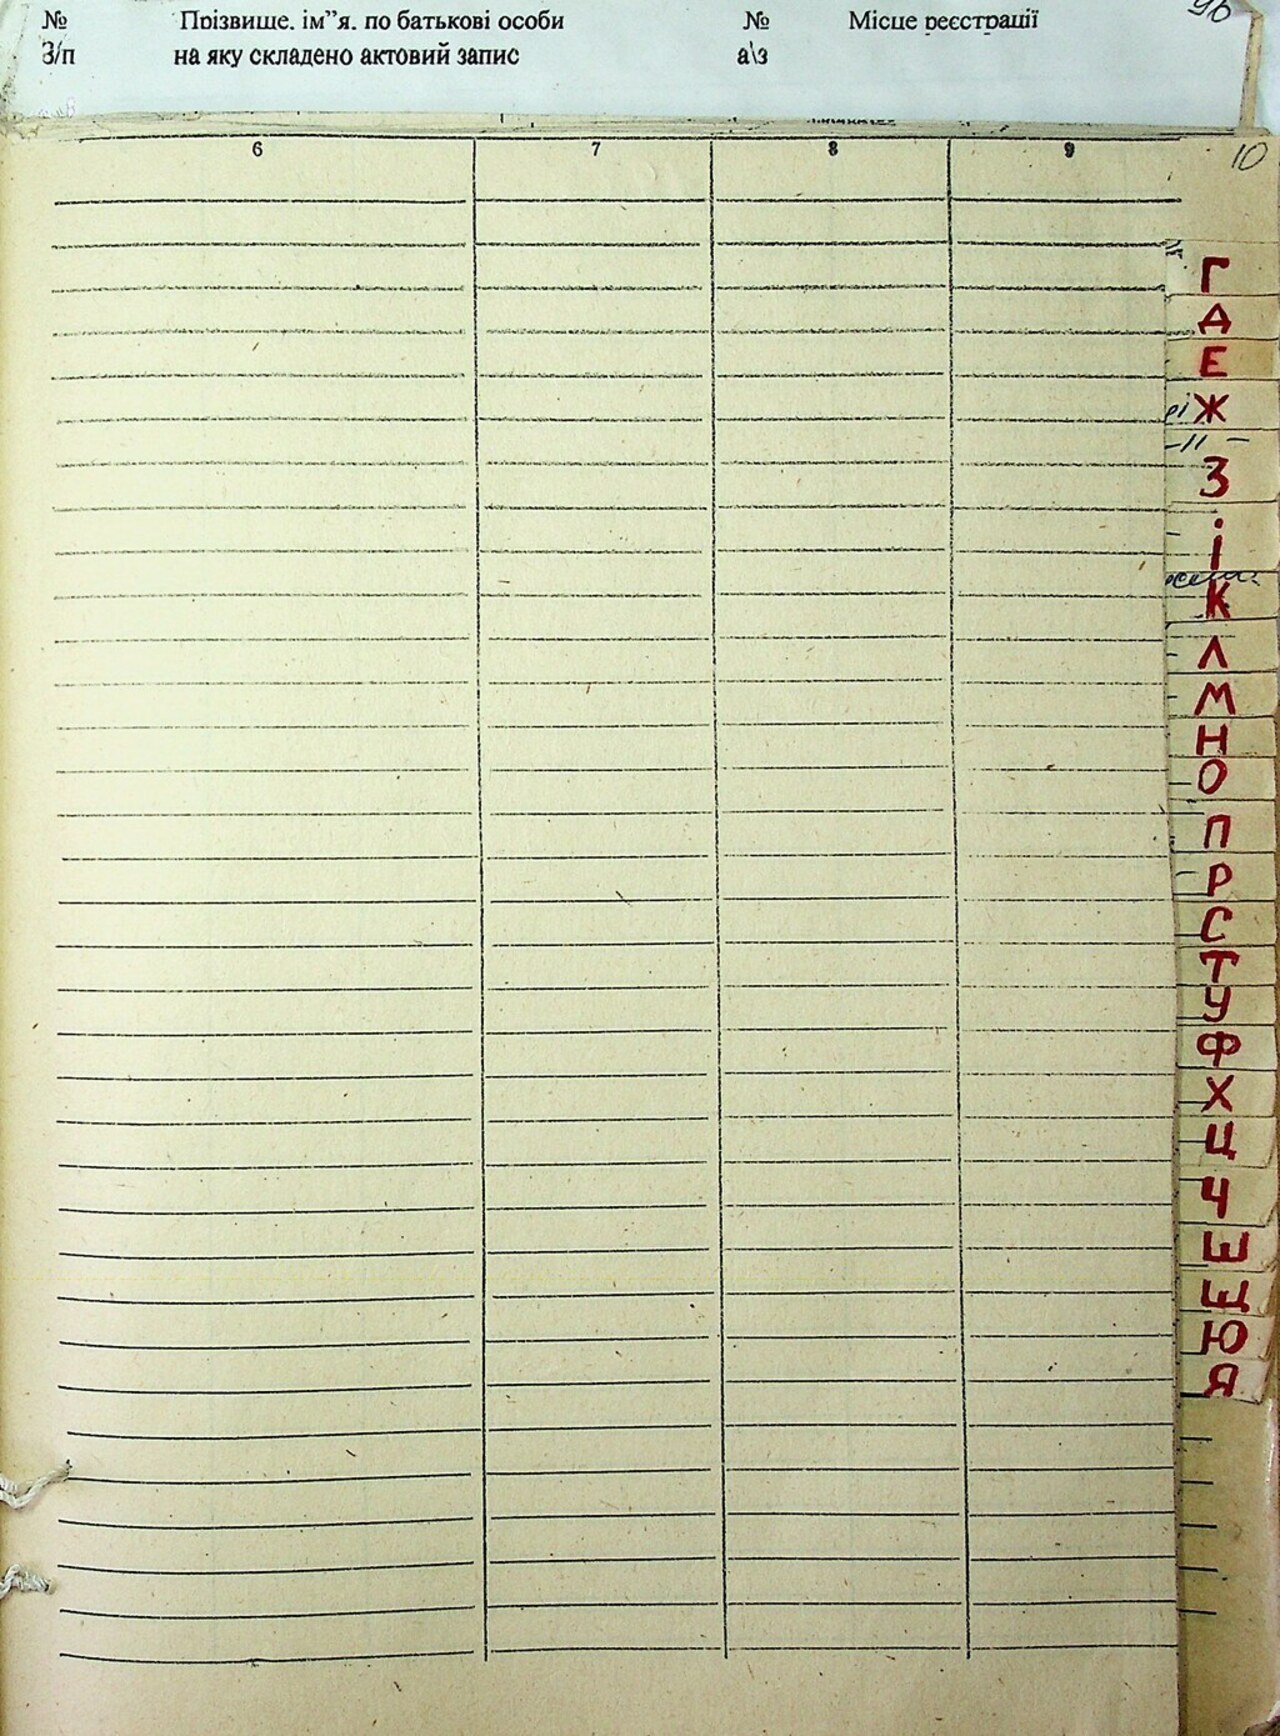 № Прізвище, ім”я, по батькові особи № Місце реєстрації 96
З/п на яку складено актовий запис а\з
6 7 8 9 10
Г
Д
Е
Ж
З
і
К
Л
М
Н
О
П
Р
С
Т
У
Ф
Х
Ц
Ч
Ш
Щ
Ю
Я